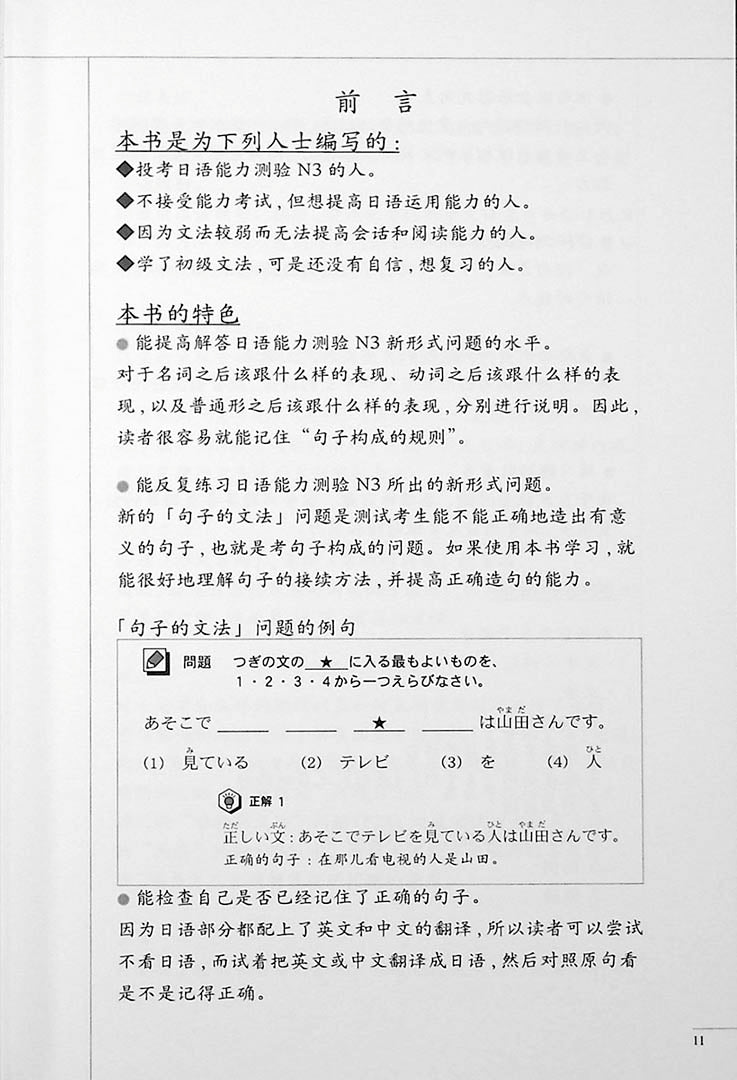 前 言
本书是为下列人士编写的:
◆投考日语能力测验 N3 的人。
◆不接受能力考试,但想提高日语运用能力的人。
◆因为文法较弱而无法提高会话和阅读能力的人。
◆学了初级文法,可是还没有自信,想复习的人。
本书的特色
● 能提高解答日语能力测验 N3 新形式问题的水平。
对于名词之后该跟什么样的表现、动词之后该跟什么样的表
现,以及普通形之后该跟什么样的表现,分别进行说明。因此,
读者很容易就能记住“句子构成的规则”。
● 能反复练习日语能力测验 N3 所出的新形式问题。
新的「句子的文法」问题是测试考生能不能正确地造出有意
义的句子,也就是考句子构成的问题。如果使用本书学习,就
能很好地理解句子的接续方法,并提高正确造句的能力。
「句子的文法」问题的例句
問題 つぎの文の ★ に入る最もよいものを、
1・2・3・4から一つえらびなさい。
やまだ
あそこで ____ ____ ★ ____ は山田さんです。
み ひと
(1) 見ている (2) テレビ (3) を (4) 人
正解 1
ただ ぶん み ひと やまだ
正しい文:あそこでテレビを見ている人は山田さんです。
正确的句子:在那儿看电视的人是山田。
● 能检查自己是否已经记住了正确的句子。
因为日语部分都配上了英文和中文的翻译,所以读者可以尝试
不看日语,而试着把英文或中文翻译成日语,然后对照原句看
是不是记得正确。
11